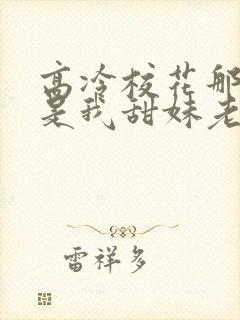 高冷校花那
是我甜妹老
雷祥多